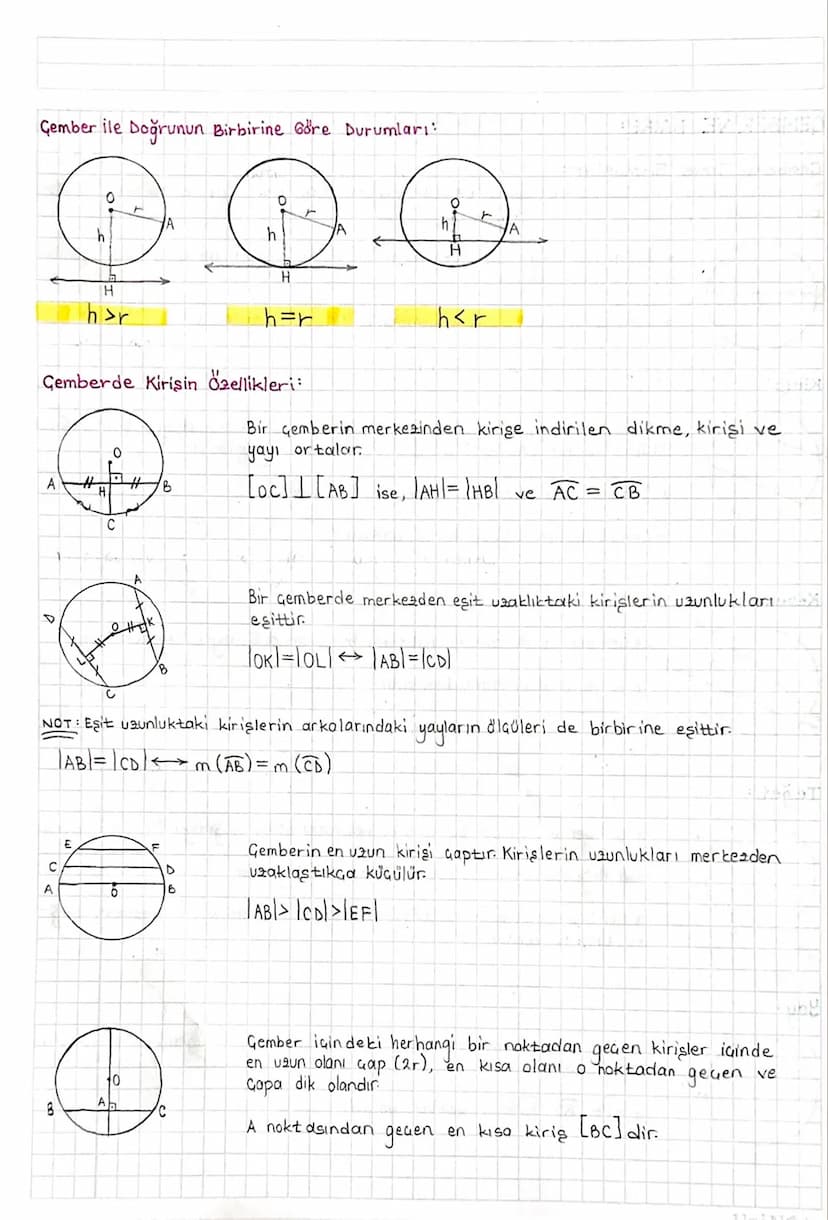 Çember ile Doğrunun Birbirine Göre Durumları:
O r A h H
O r A h H
O r A h H
h>r
h=r
h<r
Çemberde Kirişin Özellikleri:
O A H B C
Bir çemberin merkezinden kirişe indirilen dikme, kirişi ve
yayı ortalar.
[OC]⊥[AB] ise, |AH|=|HB| ve A͡C = C͡B
A D O K L B C
Bir çemberde merkezden eşit uzaklıktaki kirişlerin uzunlukları
eşittir.
|OK|=|OL| ↔ |AB|=|CD|
NOT: Eşit uzunluktaki kirişlerin arkalarındaki yayların ölçüleri de birbirine eşittir.
|AB|=|CD| ↔ m(A͡B)=m(C͡D)
E F C D A O B
Çemberin en uzun kirişi çaptır. Kirişlerin uzunlukları merkezden
uzaklaştıkça küçülür.
|AB|>|CD|>|EF|
O A B C
Çember içindeki herhangi bir noktadan geçen kirişler içinde
en uzun olanı çap (2r), en kısa olanı o noktadan geçen ve
çapa dik olandır.
A noktasından geçen en kısa kiriş [BC]dir.